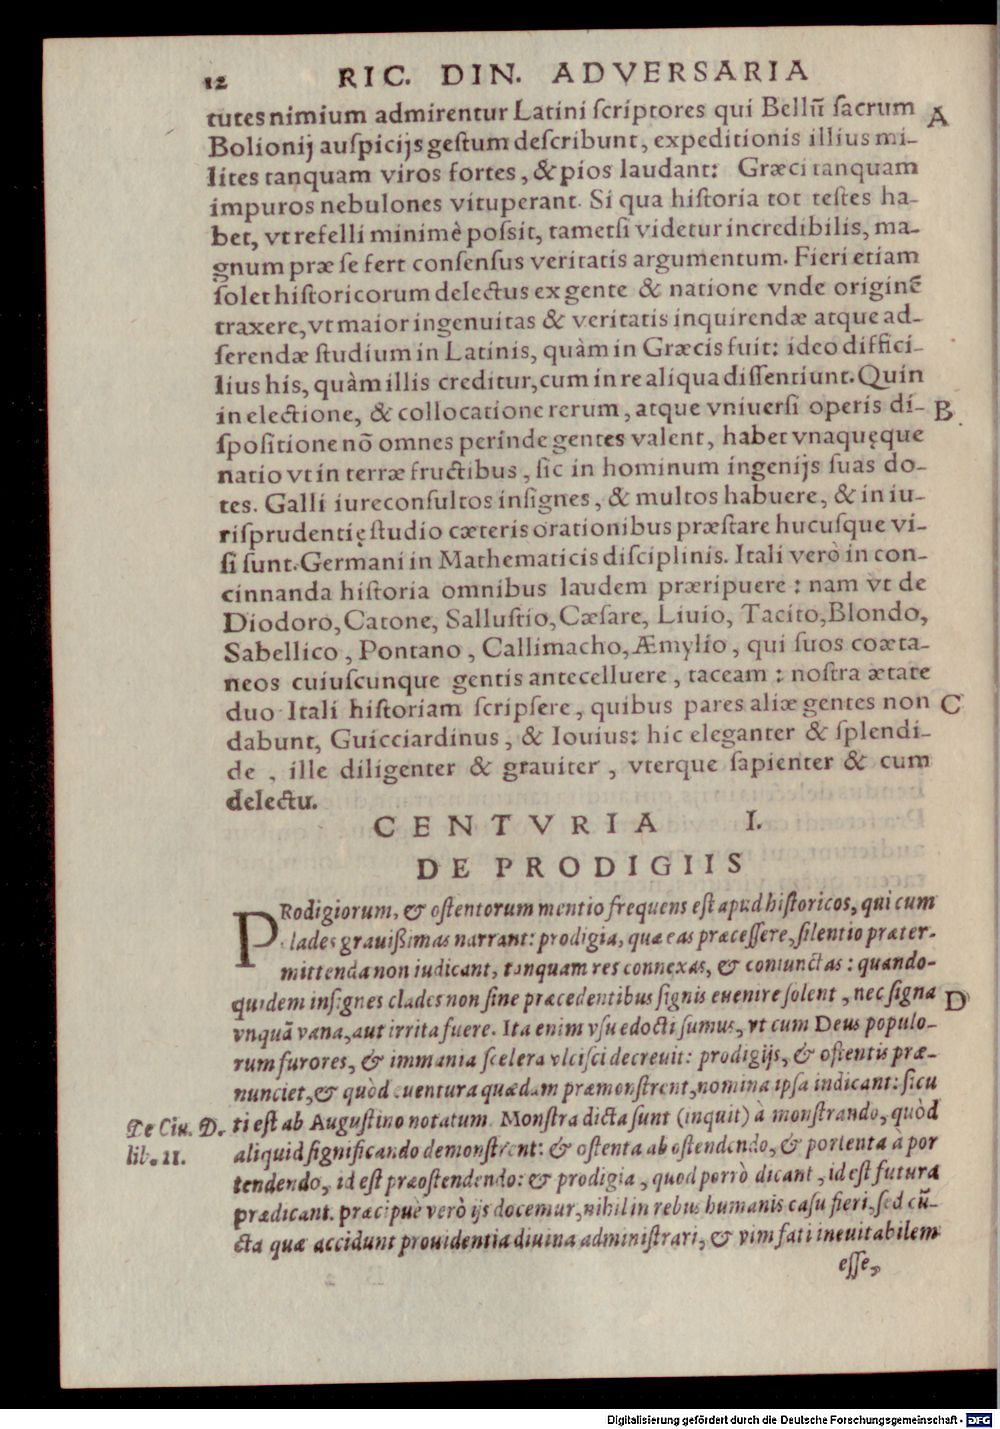 12 RIC. DIN. ADVERSARIA
tutes nimium admirentur Latini ſcriptores qui Bellũ ſacrum A
Bolionij auſpicijs geſtum deſcribunt, expeditionis illius mi-
lites tanquam viros fortes, & pios laudant: Græci tanquam
impuros nebulones vituperant. Si qua hiſtoria tot teſtes ha-
bet, vt refelli minimè poſsit, tametſi videtur incredibilis, ma-
gnum præ ſe fert conſenſus veritatis argumentum. Fieri etiam
ſolet hiſtoricorum delectus ex gente & natione vnde originẽ
traxere, vt maior ingenuitas & veritatis inquirendæ atque ad-
ſerendæ ſtudium in Latinis, quàm in Græcis fuit: ideo diffici-
lius his, quàm illis creditur, cum in re aliqua diſſentiunt. Quin
in electione, & collocatione rerum, atque vniuerſi operis di- B
ſpoſitione nõ omnes perinde gentes valent, habet vnaquęque
natio vt in terræ fructibus, ſic in hominum ingenijs ſuas do-
tes. Galli iureconſultos inſignes, & multos habuere, & in iu-
riſprudentię ſtudio cæteris orationibus præſtare hucuſque vi-
ſi ſunt. Germani in Mathematicis diſciplinis. Itali verò in con-
cinnanda hiſtoria omnibus laudem præripuere: nam vt de
Diodoro, Catone, Salluſtio, Cæſare, Liuio, Tacito, Blondo,
Sabellico, Pontano, Callimacho, Æmylio, qui ſuos coæta-
neos cuiuſcunque gentis antecelluere, taceam: noſtra ætate
duo Itali hiſtoriam ſcripſere, quibus pares aliæ gentes non C
dabunt, Guicciardinus, & Iouius: hic eleganter & ſplendi-
de, ille diligenter & grauiter, vterque ſapienter & cum
delectu.
CENTVRIA I.
DE PRODIGIIS
PRodigiorum, & oſtentorum mentio frequens eſt apud hiſtoricos, qui cum
clades grauißimas narrant: prodigia, quæ eas præceſſere, ſilentio præter-
mittenda non iudicant, tanquam res connexas, & coniunctas: quando-
quidem inſignes clades non ſine præcedentibus ſignis euenire ſolent, nec ſigna D
vnquã vana, aut irrita fuere. Ita enim vſu edocti ſumus, vt cum Deus populo-
rum furores, & immania ſcelera vlciſci decreuit: prodigijs, & oſtentis præ-
nunciet, & quòd euentura quædam præmonſtrent, nomina ipſa indicant: ſicu
De Ciu. D. ti eſt ab Auguſtino notatum. Monſtra dicta ſunt (inquit) à monſtrando, quòd
lib. 21. aliquid ſignificando demonſtrent: & oſtenta ab oſtendendo, & portenta à por
tendendo, id eſt præoſtendendo: & prodigia, quod porrò dicant, id eſt futura
prædicant. præcipuè verò ijs docemur, nihil in rebus humanis caſu fieri, ſed cũ-
cta quæ accidunt prouidentia diuina adminiſtrari, & vim fati ineuitabilem
eſſe,
Digitalisierung gefördert durch die Deutsche Forschungsgemeinschaft - DFG